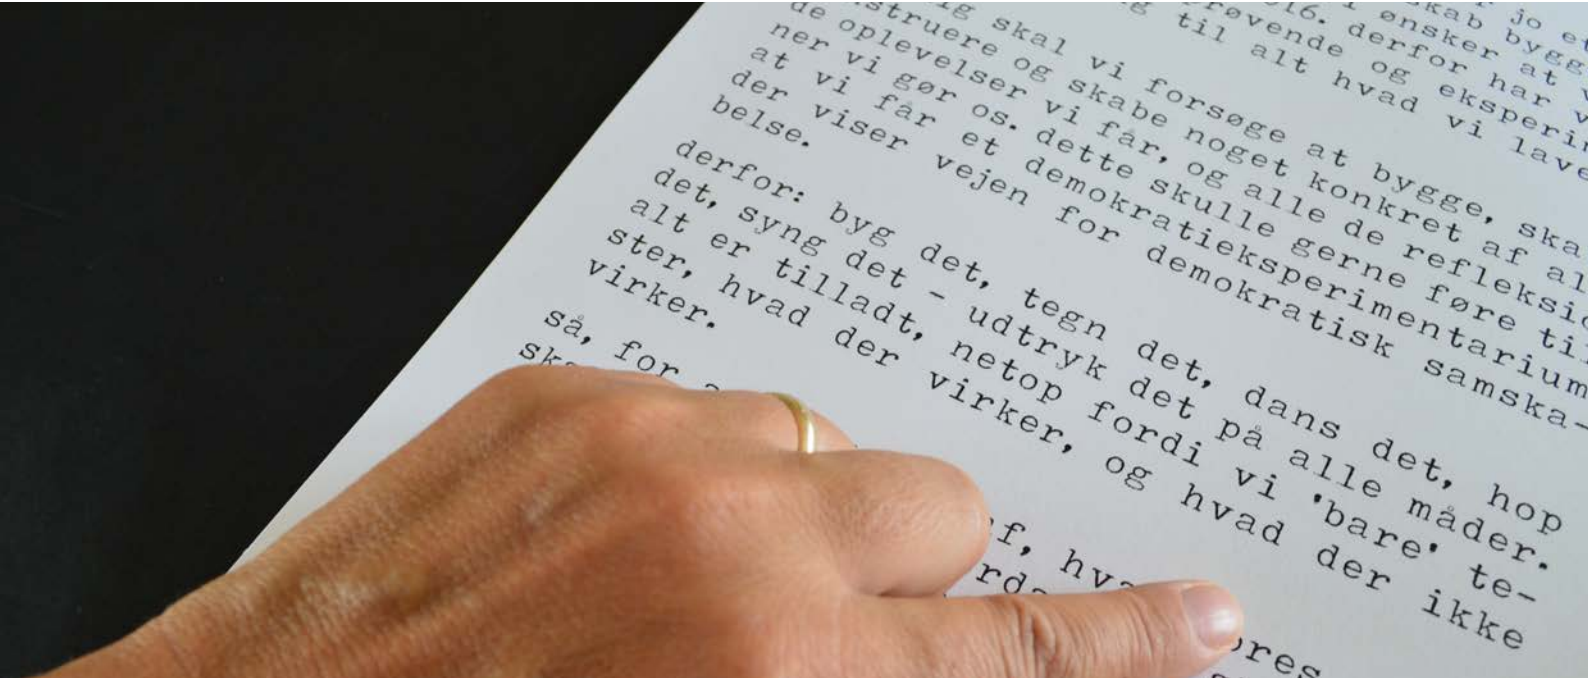 jo et
i ønsker at v
skab bygg
16. derfor har v
røvende og eksperi
til alt hvad vi lave
ig skal vi forsøge at bygge, ska
struere og skabe noget konkret af al
de oplevelser vi får, og alle de refleksio
ner vi gør os. dette skulle gerne føre til
at vi får et demokratieksperimentarium
der viser vejen for demokratisk samska-
belse.
derfor: byg det, tegn det, dans det, hop
det, syng det - udtryk det på alle måder.
alt er tilladt, netop fordi vi 'bare' te-
ster, hvad der virker, og hvad der ikke
virker.
så, for
f, hva